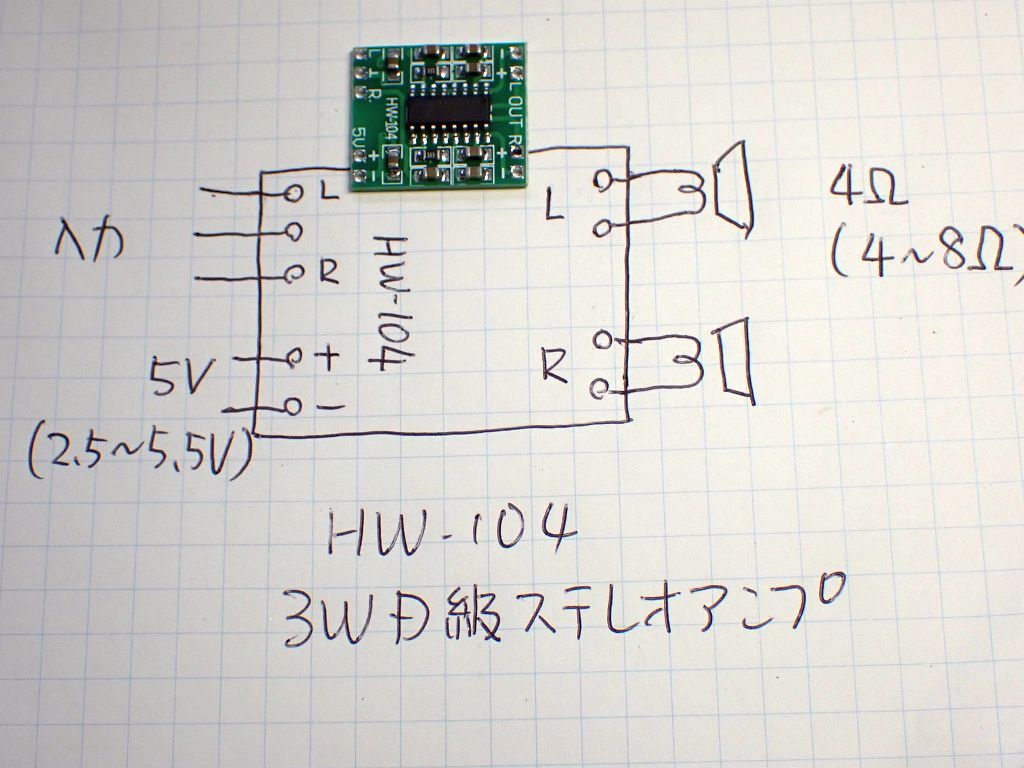 L
⊥
R
5V
+
-
HW-104
-
+
L OUT R
+
-
入力
L
R
5V
+
-
(2.5~5.5V)
HW-104
L
R
4Ω
(4~8Ω)
HW-104
3W D級ステレオアンプ